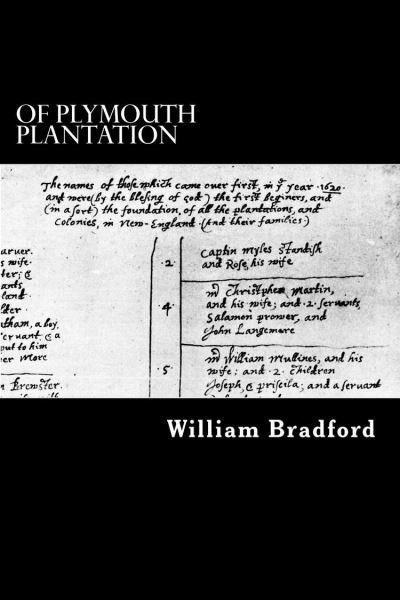 OF PLYMOUTH
PLANTATION
The names of those which came over first, in yͤ year .1620.
and were (by the blesing of god) the first beginers, and
(in a sort) the foundation, of all the plantations, and
Colonies, in New-England. (And their families.)
arver.
s wife.
ter; &
ants
land.
lder
tham, a boy,
ervant & a
put to him
er More
n Brewster.
.2.
Captin Myles Standish
and Rose, his wife
.4.
mͬ Christpher Martin,
and his wife; and .2. servants,
Salamon prower, and
John Langemore
.5.
mͬ William Mullines, and his
wife; and .2. children
Joseph, & priscila; and a servant
William Bradford